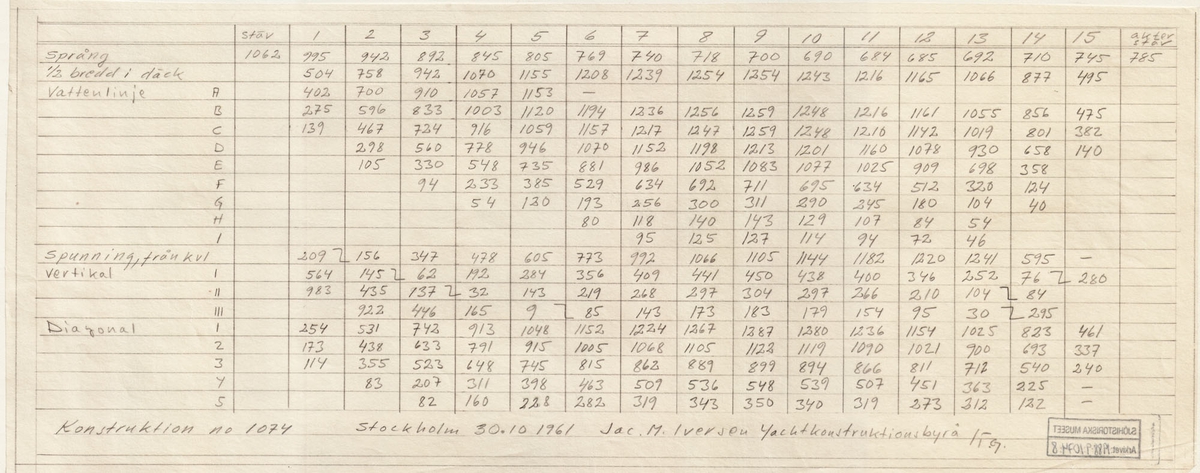 stäv 1 2 3 4 5 6 7 8 9 10 11 12 13 14 15 akter stäv
Språng 1062 995 942 892 845 805 769 740 718 700 690 684 685 692 710 745 785
1/2 bredd i däck 504 758 942 1070 1155 1208 1239 1254 1254 1243 1216 1165 1066 877 495
Vattenlinje A 402 700 910 1057 1153 —
B 275 596 833 1003 1120 1194 1236 1256 1259 1248 1216 1161 1055 856 475
C 139 467 724 916 1059 1157 1217 1247 1259 1248 1210 1142 1019 801 382
D 298 560 778 946 1070 1152 1198 1213 1201 1160 1078 930 658 140
E 105 330 548 735 881 986 1052 1083 1077 1025 909 698 358
F 94 233 385 529 634 692 711 695 634 512 320 124
G 54 120 193 256 300 311 290 245 180 104 40
H 80 118 140 143 129 107 84 54
I 95 125 127 114 94 72 46
Spunning, från kvl 209 156 347 478 605 773 992 1066 1105 1144 1182 1220 1241 595 —
Vertikal I 564 145 62 192 284 356 409 441 450 438 400 346 252 76 280
II 983 435 137 32 143 219 268 297 304 297 266 210 104 84
III 922 446 165 9 85 143 173 183 179 154 95 30 295
Diagonal 1 254 531 742 913 1048 1152 1224 1267 1287 1280 1236 1154 1025 823 461
2 173 438 633 791 915 1005 1068 1105 1122 1119 1090 1021 900 693 337
3 114 355 523 648 745 815 862 889 899 894 866 811 712 540 240
4 83 207 311 398 463 509 536 548 539 507 451 363 225 —
5 82 160 228 282 319 343 350 340 319 273 212 122 —
Konstruktion no 1074 Stockholm 30.10 1961 Jac. M. Iversen Yachtkonstruktionsbyrå
SJÖHISTORISKA MUSEET